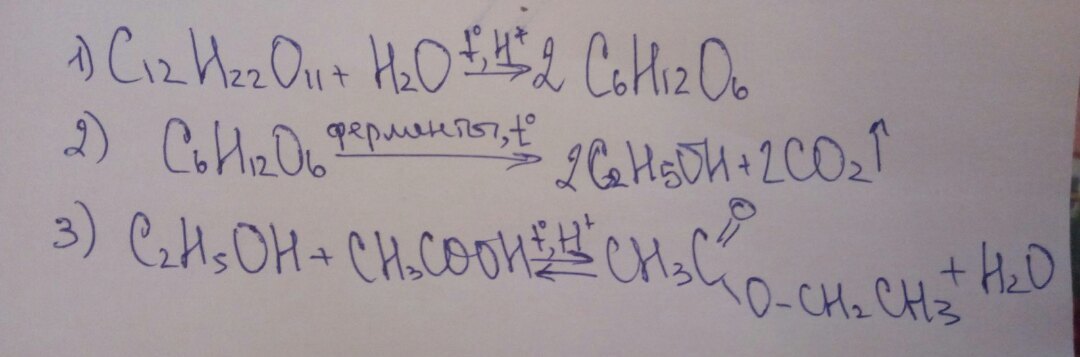 1) C12H22O11 + H2O t°, H+ → 2 C6H12O6
2) C6H12O6 ферменты, t° → 2C2H5OH + 2CO2↑
3) C2H5OH + CH3COOH t°, H+ ⇌ CH3C=O O-CH2CH3 + H2O